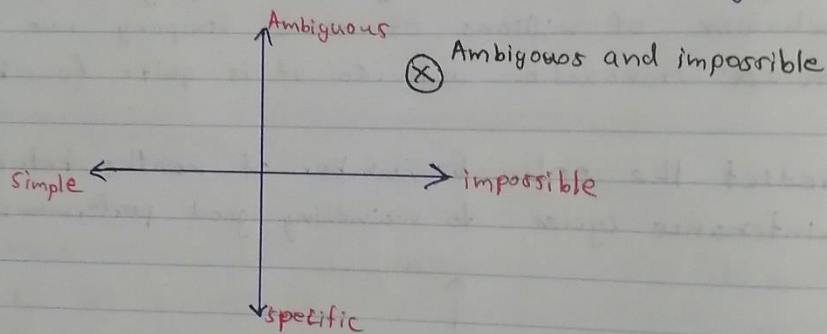 Ambiguous
Ambigouos and impossible
simple
impossible
specific